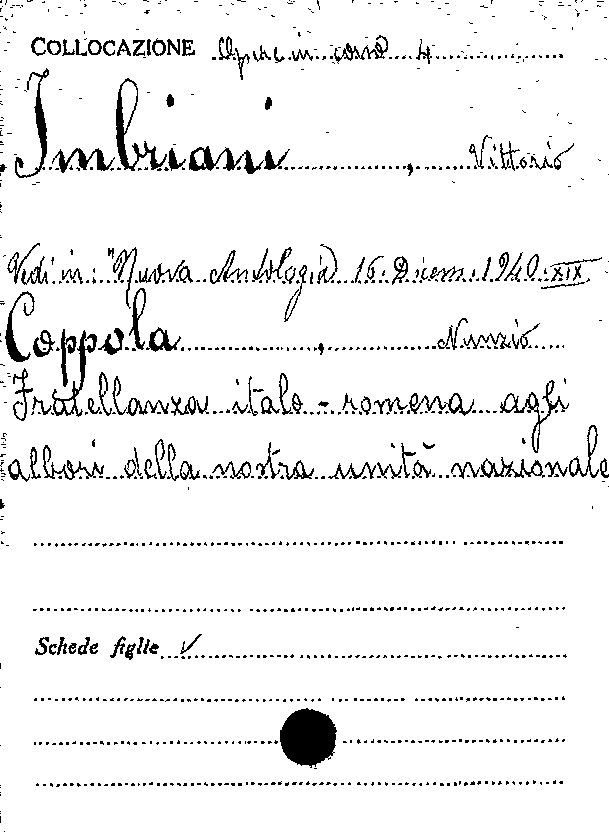 COLLOCAZIONE Opere in corso 4
Imbriani, Vittorio
Vedi in: "Nuova Antologia) 16. Dicem. 1940. XIX
Coppola, Nunzio
Fratellanza italo - romena agli
albori della nostra unità nazionale
Schede figlie ✓